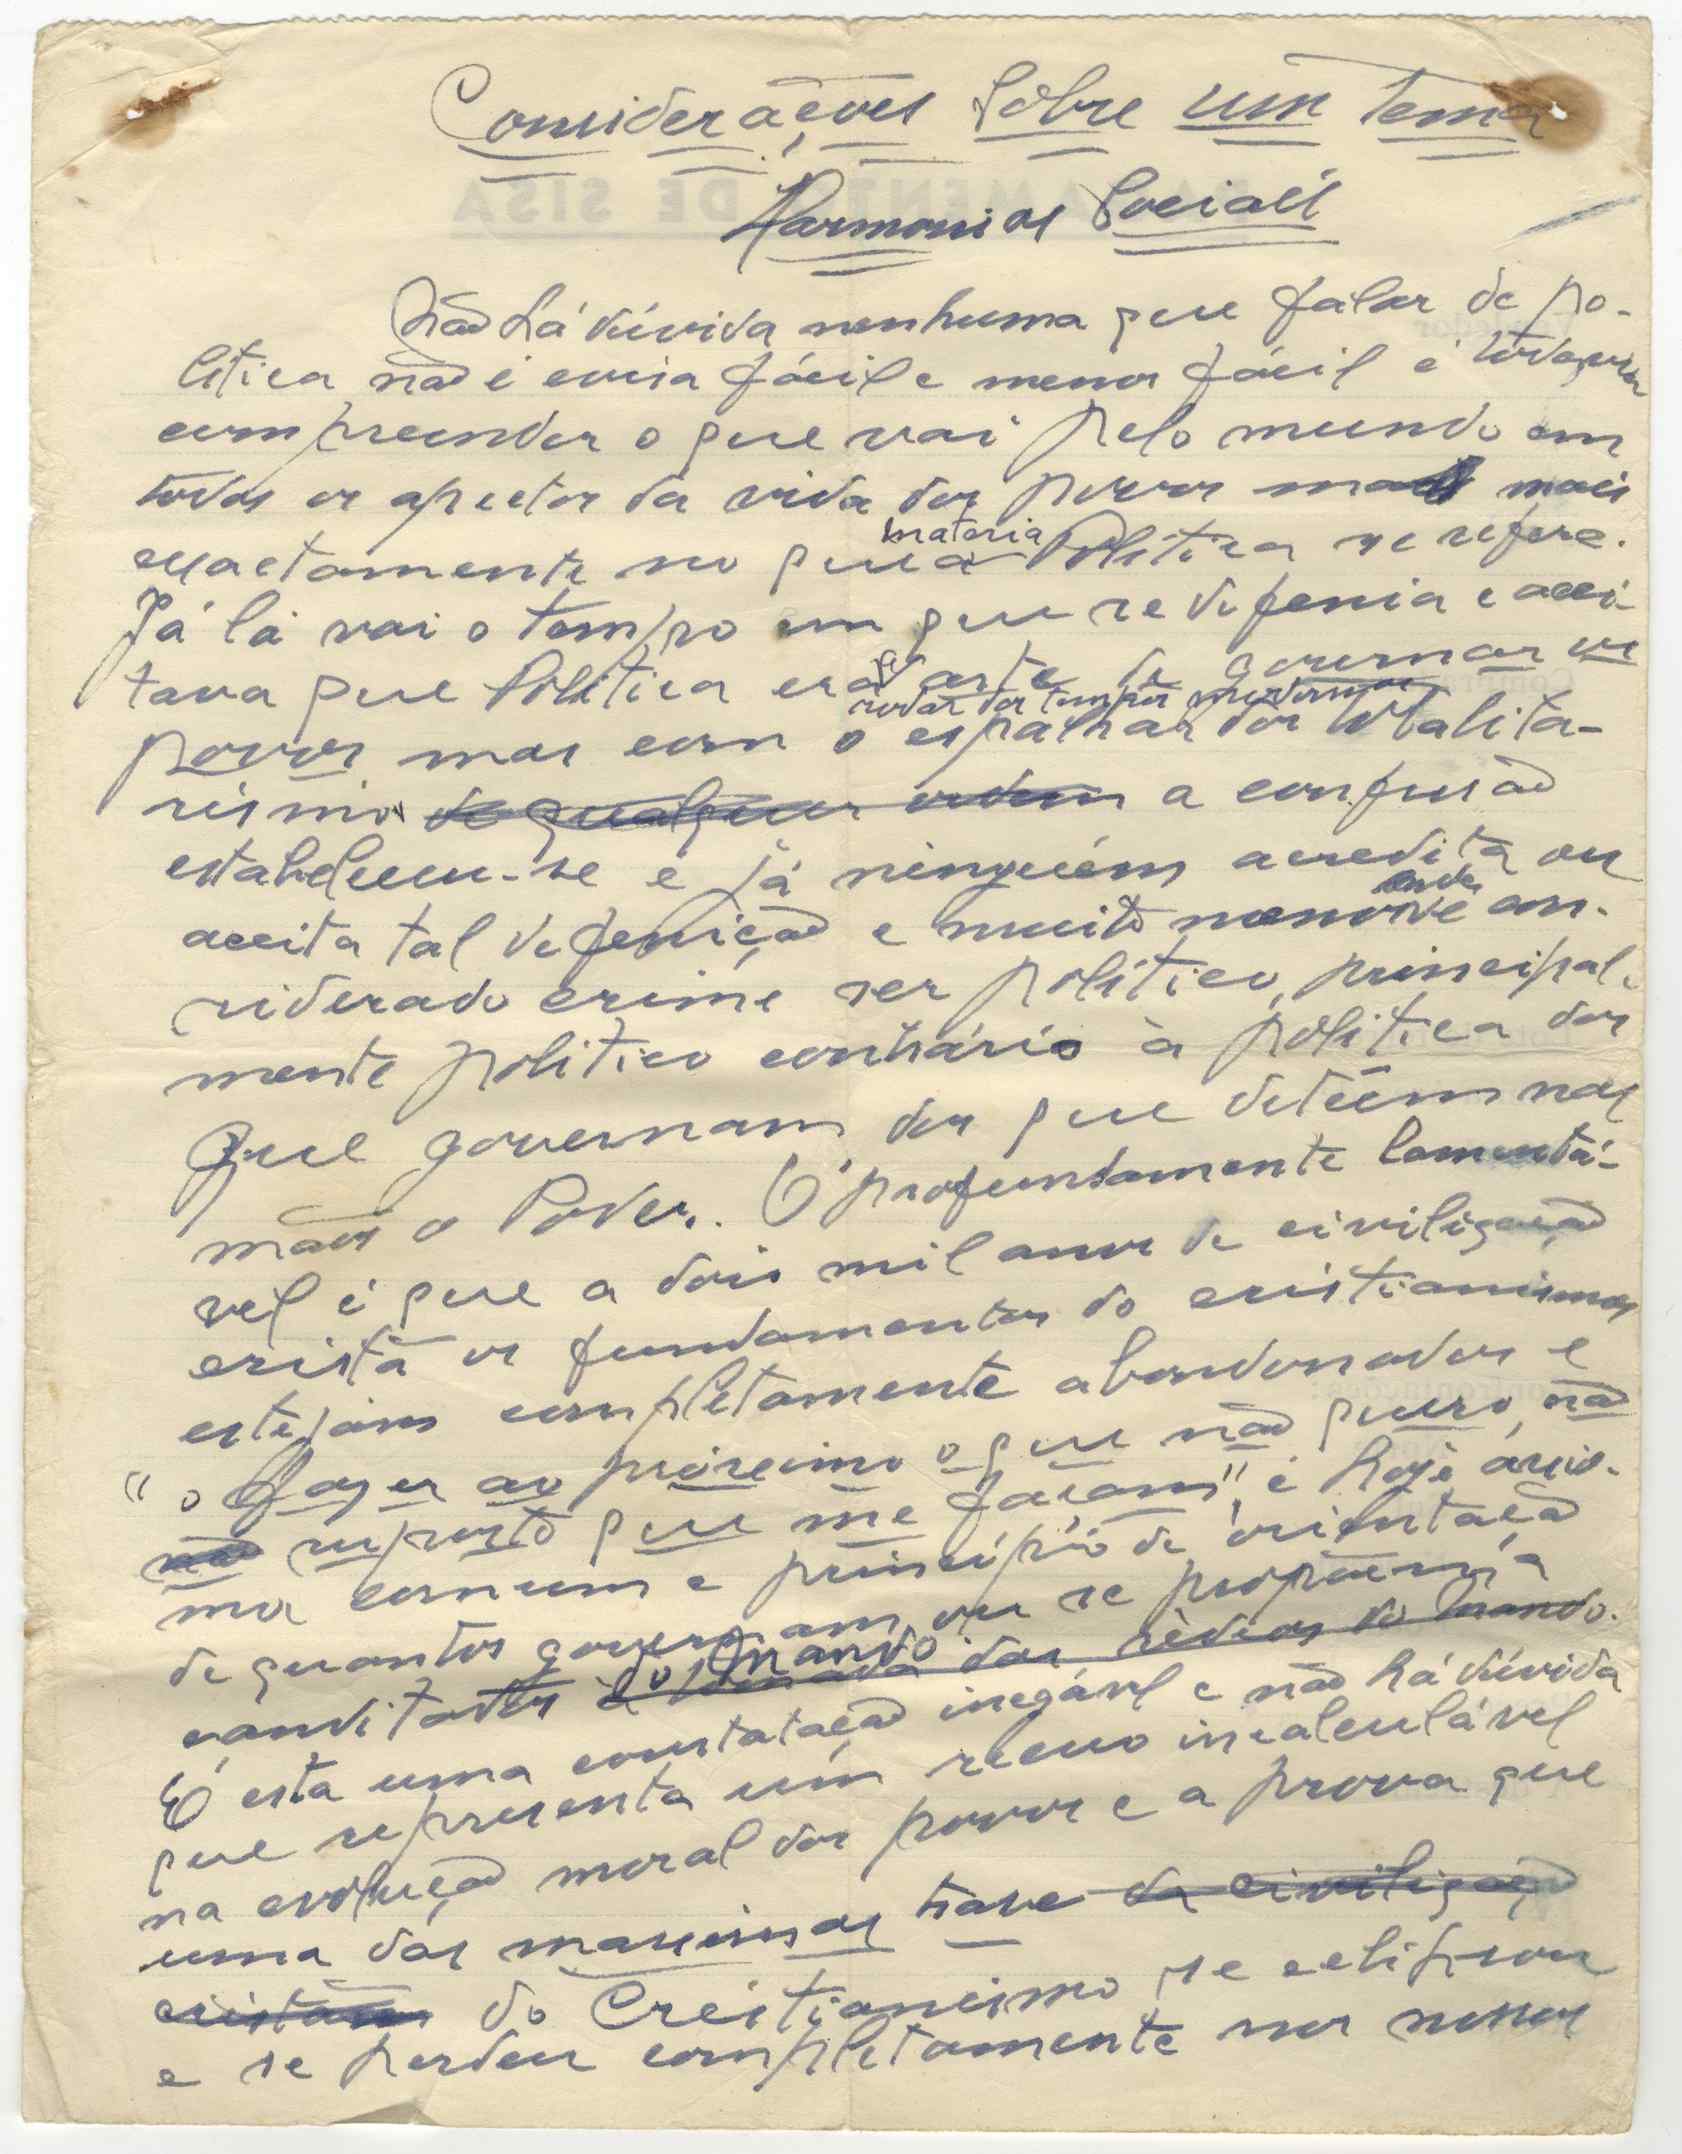 Considerações Sobre um Tema
Harmonias Sociais
Não há dúvida nenhuma que falar de po-
litica não é coisa fácil e menos fácil é todavia
compreender o que vai pelo mundo em
todos os aspectos da vida dos povos mais
exactamente no que a materia Politica se refere.
Já lá vai o tempo em que se defenia e acei-
tava que Politica era a arte de governar os
rodar dos tempos modernos
povos mas com o espalhar dos totalita-
rismos de qualquer ordem a confusão
estabeleceu-se e já ninguém acredita ou
aceita tal defenição e muito menos onde é con-
siderado crime ser politico, principal-
mente politico contrário à politica dos
que governam, dos que detêem nas
mãos o Poder. É profundamente lamentá-
vel é que a dois mil anos de civilização
cristã os fundamentos do cristianismo
estejam completamente abandonados e
"o fazer ao próximo o que não quero, não
não suposto que me façam", é hoje àxio-
ma comum e princípio de orientação
de quantos governam ou se propõem a
canditatos do mando à tomada das rédeas do mando.
É esta uma constatação inegável e não há dúvida
que representa um recuo incalculável
na evolução moral dos povos e a prova que
uma das maximas base da civilização
cristã do Cristianismo se eclipsou
e se perdeu completamente nos nossos